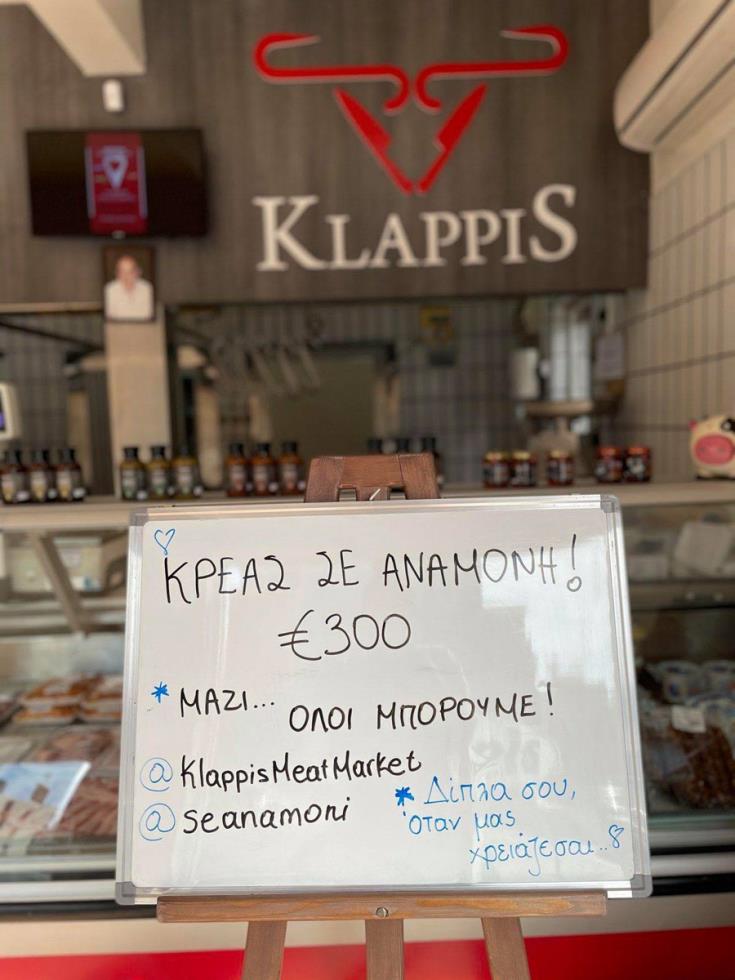 KLAPPIS
ΚΡΕΑΣ ΣΕ ΑΝΑΜΟΝΗ!
€300
* ΜΑΖΙ... ΟΛΟΙ ΜΠΟΡΟΥΜΕ!
@KlappisMeatMarket
@seanamoni
* Δίπλα σου,
όταν μας
χρειάζεσαι..